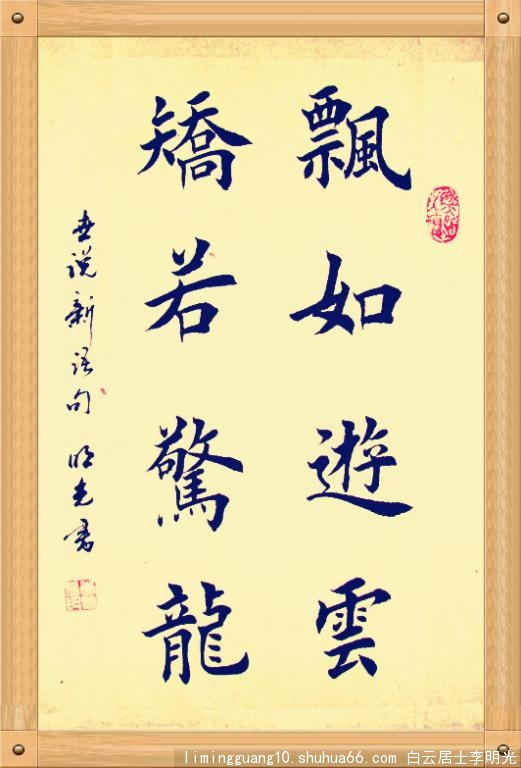 飄如遊雲
矯若驚龍
世说新语句 明光书
limingguang10.shuhua66.com 白云居士李明光